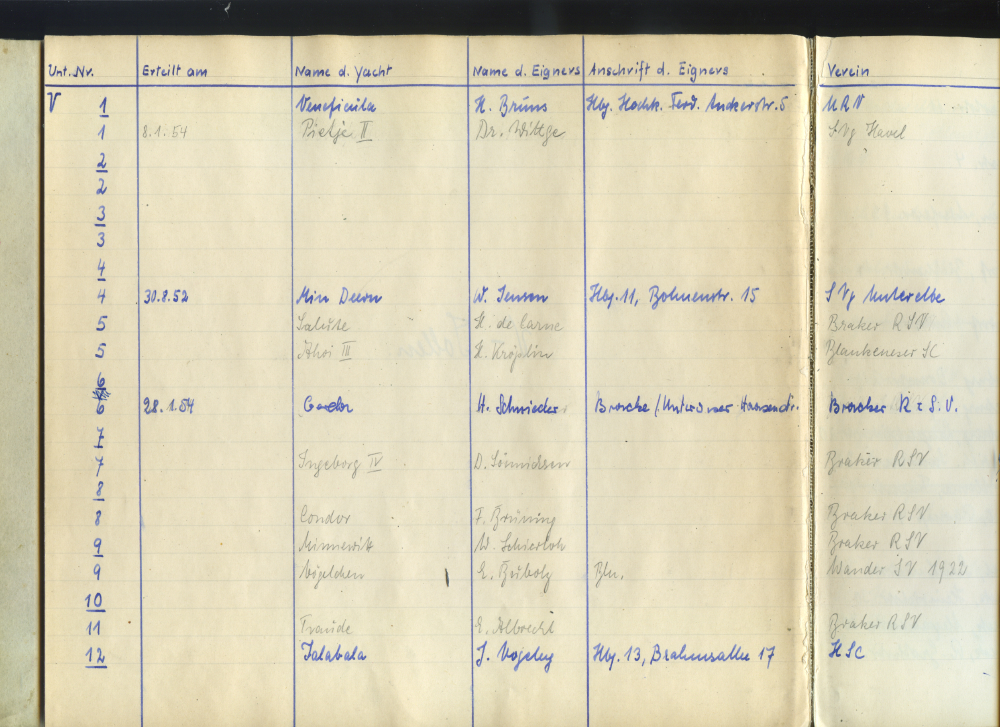 Unt. Nr. Erteilt am Name d. Yacht Name d. Eigners Anschrift d. Eigners Verein
V 1 Veneficula H. Bruns Hbg. Hochk. Ferd. Anckerstr. 5 NRV
1 8.1.54 Pietje II Dr. Wittge SVg Havel
2
2
3
3
4
4 30.8.52 Min Deern W. Jenson Hbg. 11, Bohnenstr. 15 SVg Unterelbe
5 Salute H. de Carne Braker RSV
5 Ahoi III H. Kröplin Blankeneser SC
6
6 28.1.54 H. Schmieder Bracke / Braker R.S.V.
7
7 Ingeborg IV D. Braker RSV
8
8 Condor F. Brüning Braker RSV
9 Minnewitt W. Schierloh Braker RSV
9 Vögelchen E. Bln. Wander SV 1922
10
11 Traude E. Albrecht Braker RSV
12 Talabala J. Vogeley Hbg. 13, Brahmsallee 17 HSC